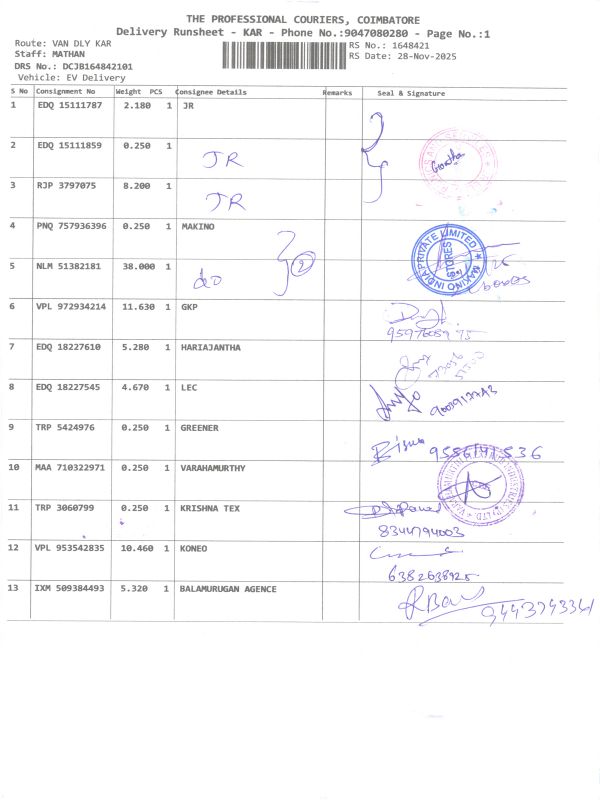 THE PROFESSIONAL COURIERS, COIMBATORE
Delivery Runsheet - KAR - Phone No.:9047080280 - Page No.:1
Route: VAN DLY KAR
Staff: MATHAN
DRS No.: DCJB164842101
Vehicle: EV Delivery
RS No.: 1648421
RS Date: 28-Nov-2025
S No Consignment No Weight PCS Consignee Details Remarks Seal & Signature
1 EDQ 15111787 2.180 1 JR
2 EDQ 15111859 0.250 1 JR
3 RJP 3797075 8.200 1 JR
4 PNQ 757936396 0.250 1 MAKINO
MAKINO INDIA PRIVATE LIMITED
STORES
5 NLM 51382181 38.000 1 do 2
6 VPL 972934214 11.630 1 GKP
7 EDQ 18227610 5.280 1 HARIAJANTHA
8 EDQ 18227545 4.670 1 LEC
9 TRP 5424976 0.250 1 GREENER
10 MAA 710322971 0.250 1 VARAHAMURTHY
11 TRP 3060799 0.250 1 KRISHNA TEX
8344794003
12 VPL 953542835 10.460 1 KONEO
6382638925
13 IXM 509384493 5.320 1 BALAMURUGAN AGENCE
9443743341